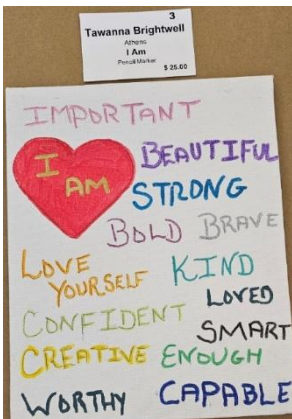 3
Tawanna Brightwell
Athens
I Am
Pencil Marker
$ 25.00
IMPORTANT
I AM
BEAUTIFUL
STRONG
BOLD BRAVE
LOVE YOURSELF
KIND
LOVED
CONFIDENT
SMART
CREATIVE ENOUGH
WORTHY CAPABLE